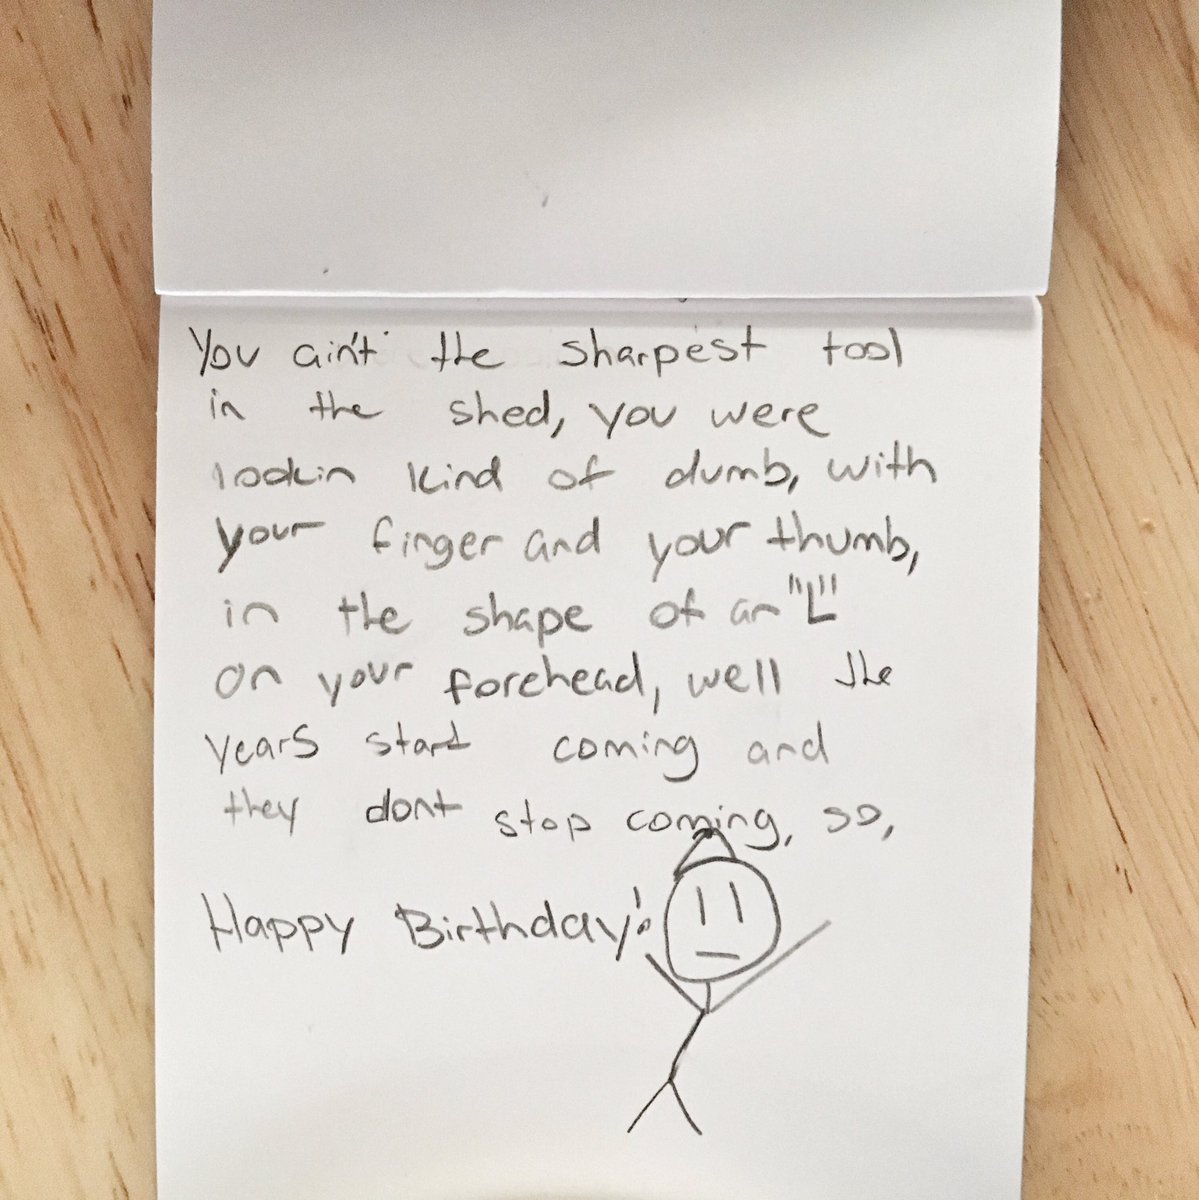 You ain't the sharpest tool
in the shed, you were
lookin kind of dumb, with
your finger and your thumb,
in the shape of an "L"
on your forehead, well the
years start coming and
they dont stop coming, so,
Happy Birthday!